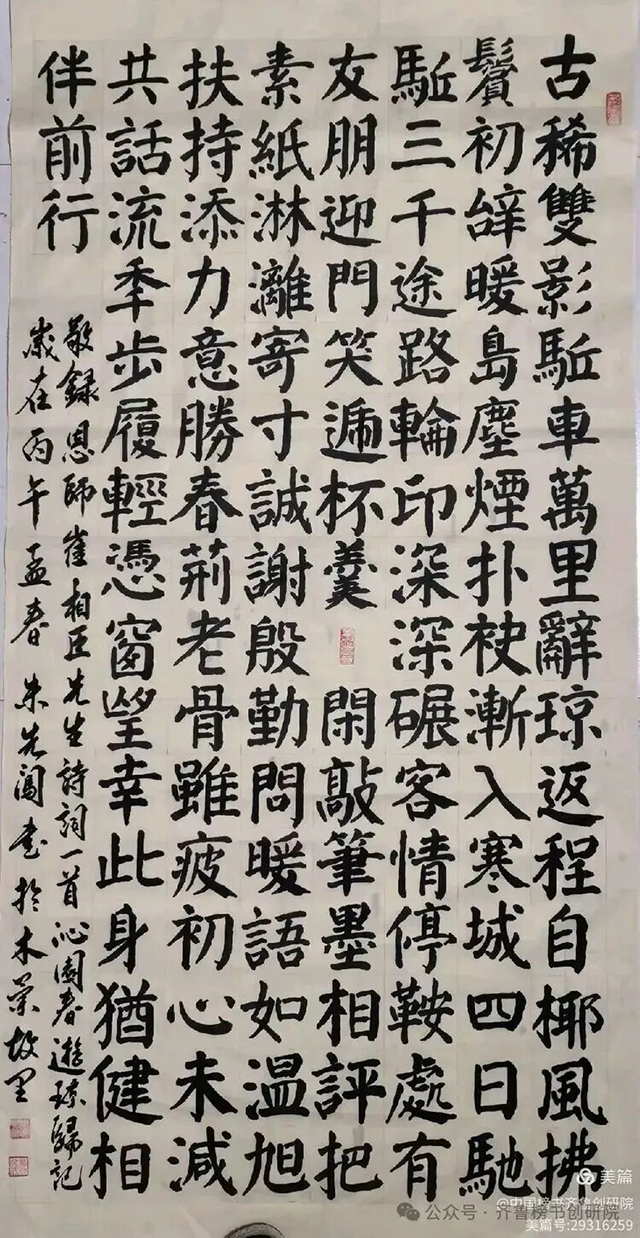 古稀雙影駈車萬里辭琼返程自椰風拂
鬢初辞暖島塵煙扑袂漸入寒城四日馳
駈三千途路輪印深深碾客情停鞍處有
友朋迎門笑遞杯羹閑敲筆墨相評把
素紙淋漓寄寸誠謝殷勤問暖語如温旭
扶持添力意勝春荊老骨雖疲初心未減
共話流季步履輕憑窗望幸此身猶健相
伴前行
敬録恩師崔相臣先生詩詞一首沁園春遊琼歸記
歲在丙午孟春朱先闖書於木蘭故里
美篇
@中国榜书齐鲁创研院
公众号·齐鲁榜书创研院
美篇号:29316259